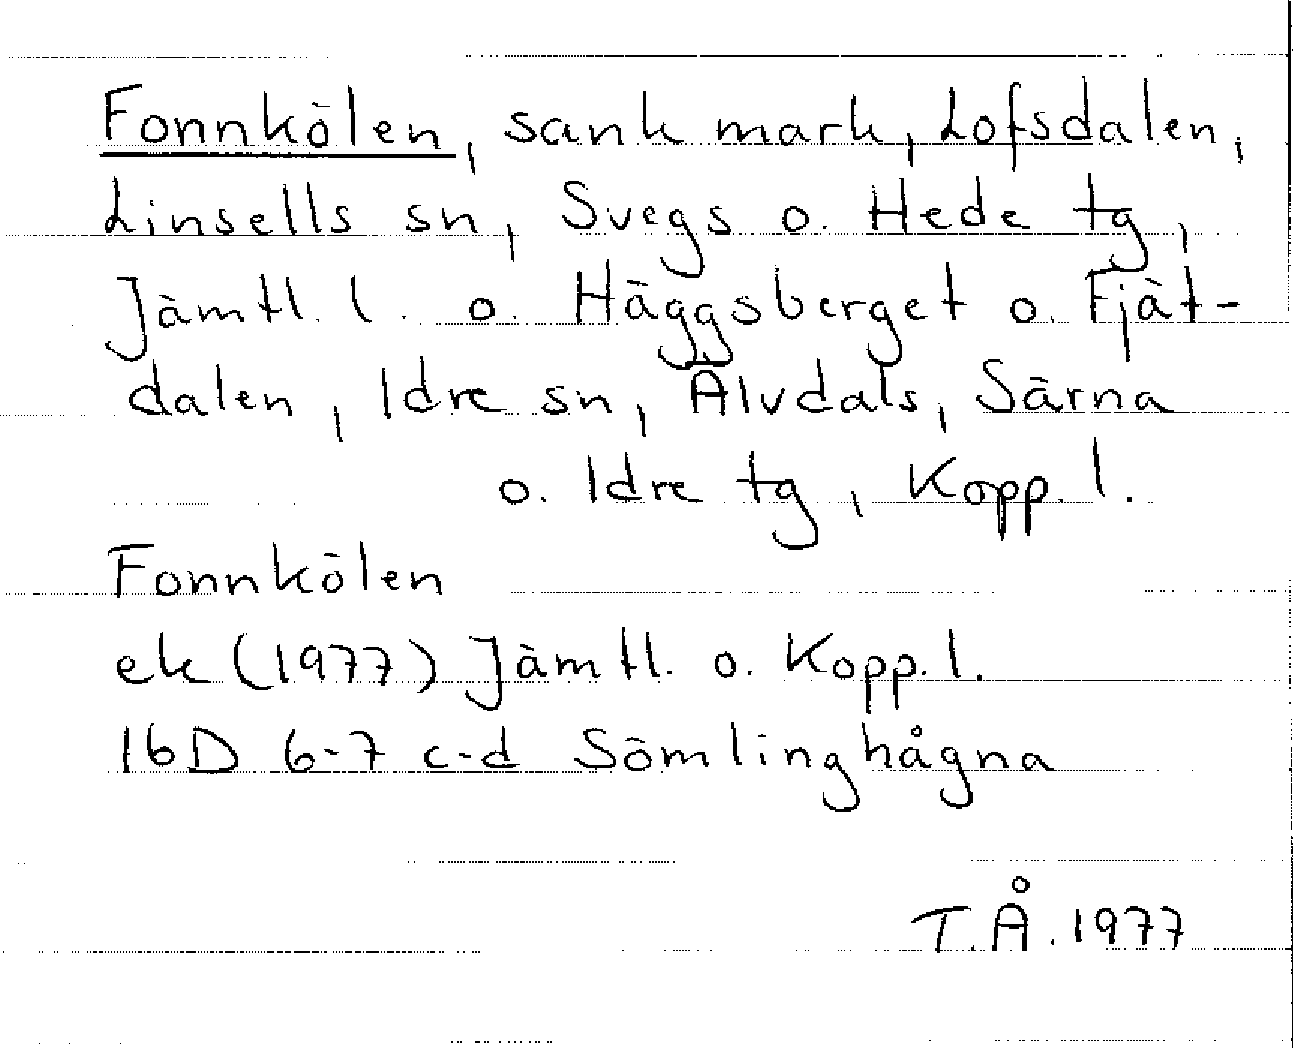 Fonnkölen, sank mark, Lofsdalen,
Linsells sn, Svegs o. Hede tg,
Jämtl. l. o. Häggsberget o. Fjät-
dalen, Idre sn, Älvdals, Särna
o. Idre tg, Kopp. l.
Fonnkölen
ek (1977) Jämtl. o. Kopp. l.
16D 6-7 c-d Sömlinghågna
T.Å. 1977